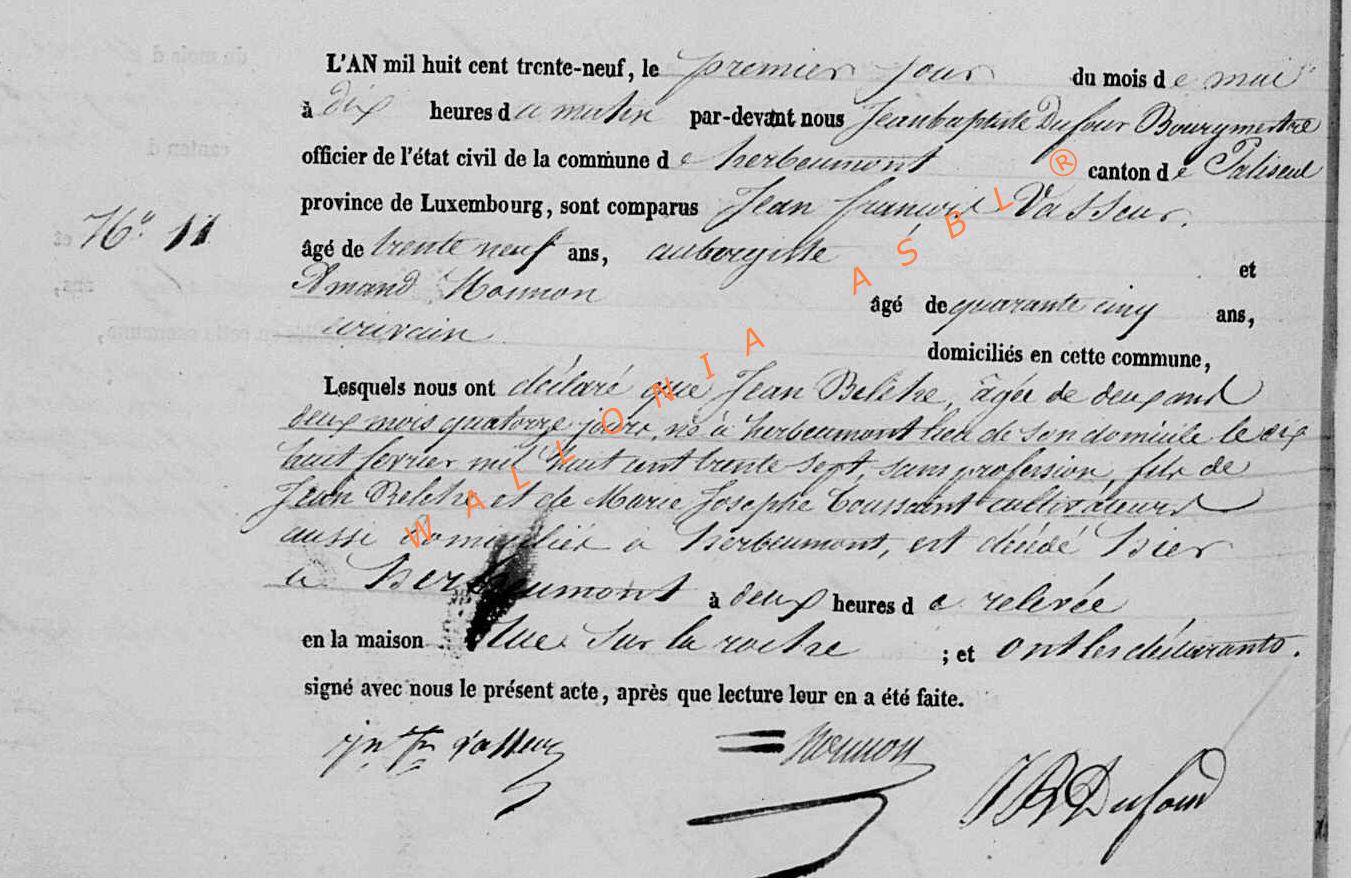 L'AN mil huit cent trente-neuf, le premier jour du mois de mai
à dix heures du matin par-devant nous Jeanbaptiste Dufour Bourgmestre
officier de l'état civil de la commune de herbeumont canton de Paliseul
province de Luxembourg, sont comparus Jean francois Vasseur,
N° 11
âgé de trente neuf ans, aubergiste et
Amand Monnon âgé de quarante cinq ans,
écrivain
domiciliés en cette commune,
Lesquels nous ont déclaré que Jean Beléhe, âgée de deux ans
deux mois quatorze jours, né à herbeumont lieu de son domicile le dix
huit fevrier mil huit cent trente sept, sans profession, fils de
Jean Beléhe et de Marie Josephe Toussaint cultivateurs
aussi domiciliés à herbeumont, est décédé hier
à Herbeumont à deux heures de relevée
en la maison Rue sur la roche ; et ont les déclarants.
signé avec nous le présent acte, après que lecture leur en a été faite.
jn fr Vasseur Monnon
JB Dufour
WALLONIA ASBL ®